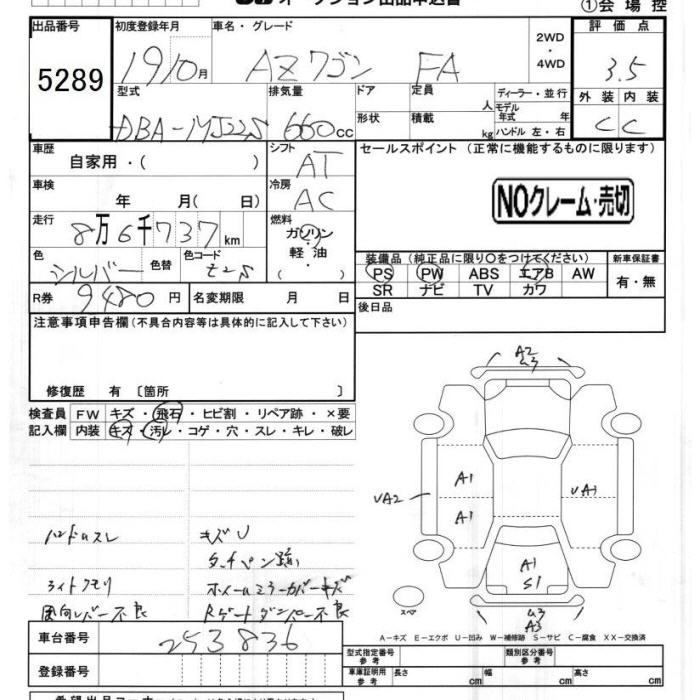 オークション出品申込書
①会場控
出品番号 初度登録年月 車名・グレード 2WD・4WD 評価点
5289 19年10月 AZワゴン FA 3.5
型式 排気量 ドア 定員 人 ディーラー・並行 外装 内装
DBA-MJ22S 660cc 形状 積載 kg モデル年式 年 ハンドル 左・右 C C
車歴 自家用・( ) シフト AT セールスポイント (正常に機能するものに限ります)
車検 年 月( 日) 冷房 AC
NOクレーム・売切
走行 8万6千737km 燃料 ガソリン・軽油・
色 シルバー 色替 色コード Z2S
装備品 (純正品に限り〇をつけてください) 新車保証書
PS PW ABS エアB AW 有・無
SR ナビ TV カワ
R券 9480円 名変期限 月 日
後日品
注意事項申告欄(不具合内容等は具体的に記入して下さい)
修復歴 有 〔箇所 〕
検査員 FW キズ・飛石・ヒビ割・リペア跡・×要
記入欄 内装 キズ・汚レ・コゲ・穴・スレ・キレ・破レ
A2
U3
A1
UA2
UA1
A1
A1
S1
スペア
U3
A3
ハンドルスレ キズU
タッチペン跡
ライトクモリ ホイールミラーカバーキズ
風向レバー不良 Rゲートダンパー不良
A-キズ E-エクボ U-凹み W-補修跡 S-サビ C-腐食 XX-交換済
車台番号 253836
型式指定番号 参考 類別区分番号 参考
登録番号
車庫証明用 参考 長さ cm 幅 cm 高さ cm